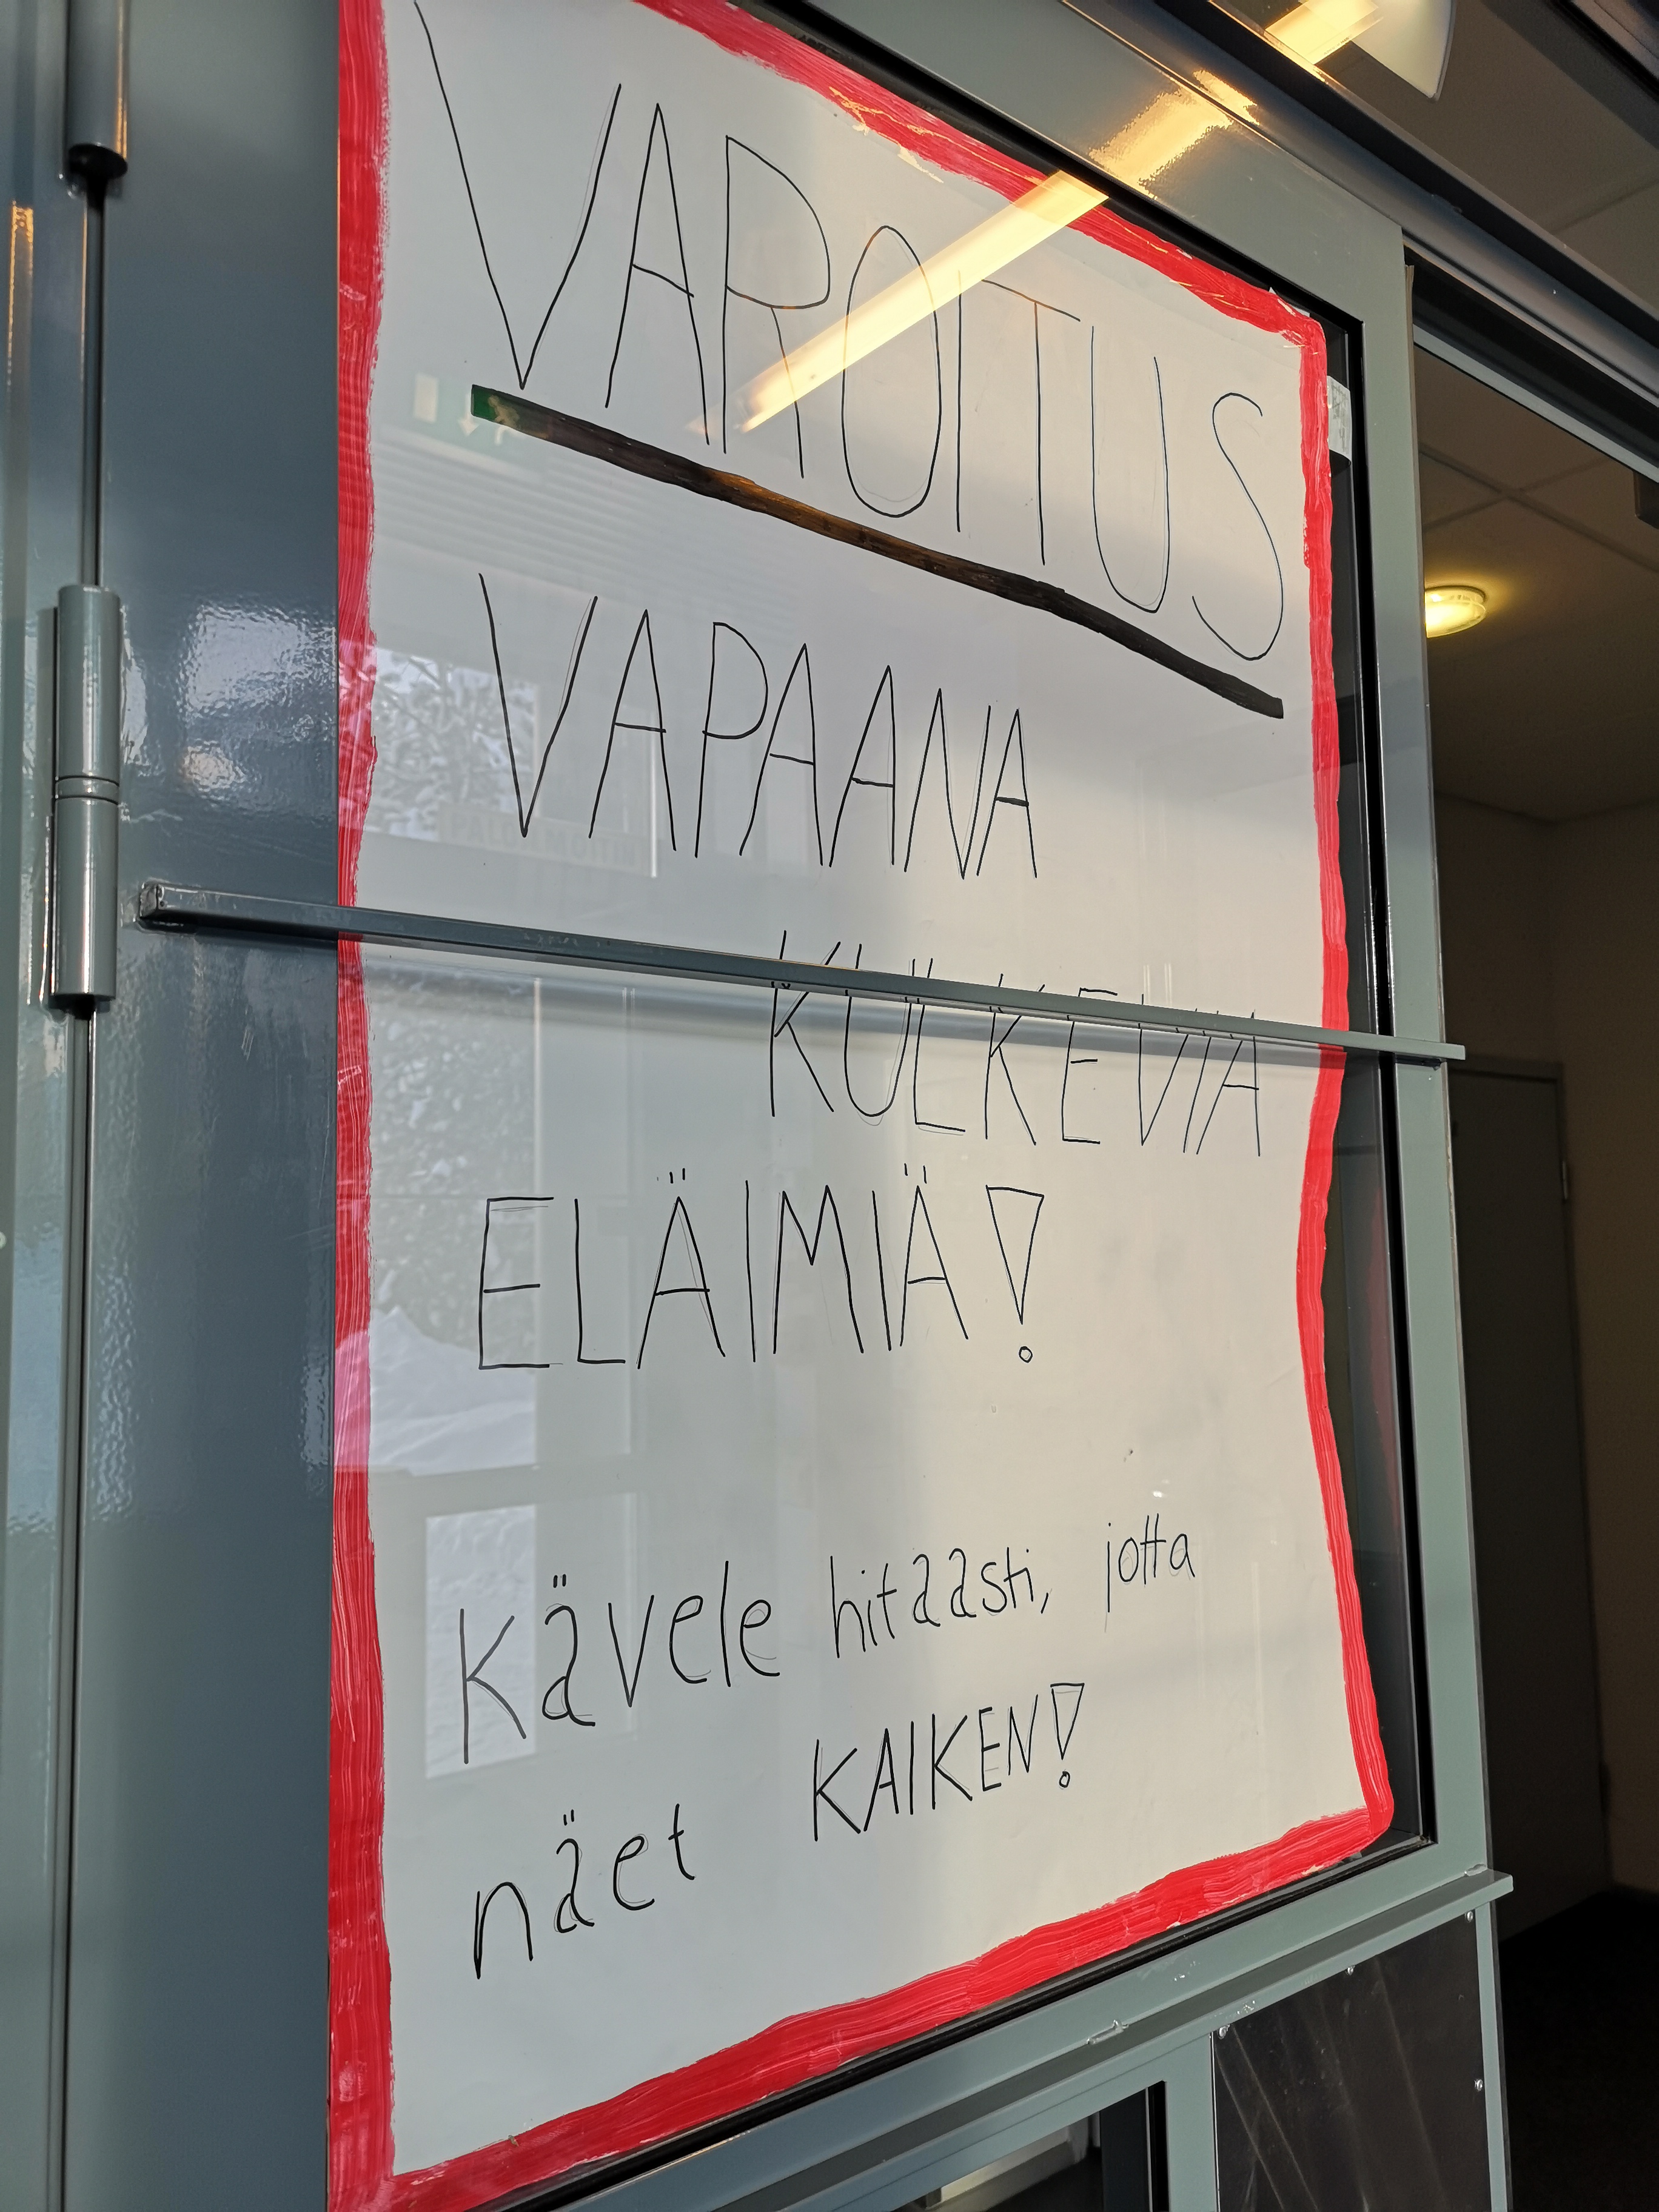 VAROITUS
VAPAANA
KULKEVIA
ELÄIMIÄ!
Kävele hitaasti, jotta
näet KAIKEN!